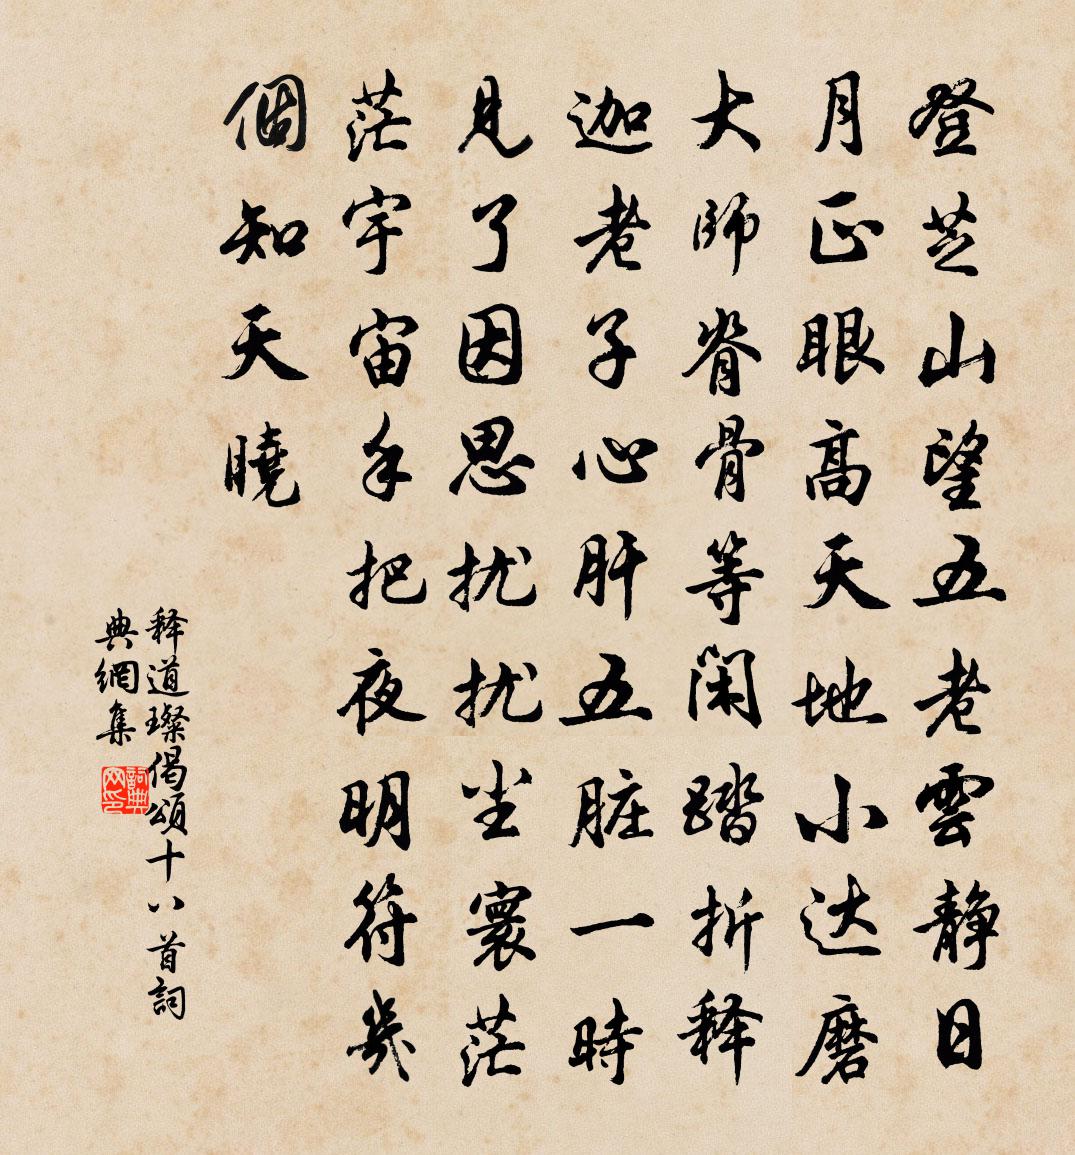 登芝山望五老雲静日
月正眼高天地小达磨
大師脊骨等閑踏折释
迦老子心肝五脏一時
見了因思扰扰尘寰茫
茫宇宙手把夜明符幾
個知天曉
释道璨偈頌十八首詞
典網集
詞典网印